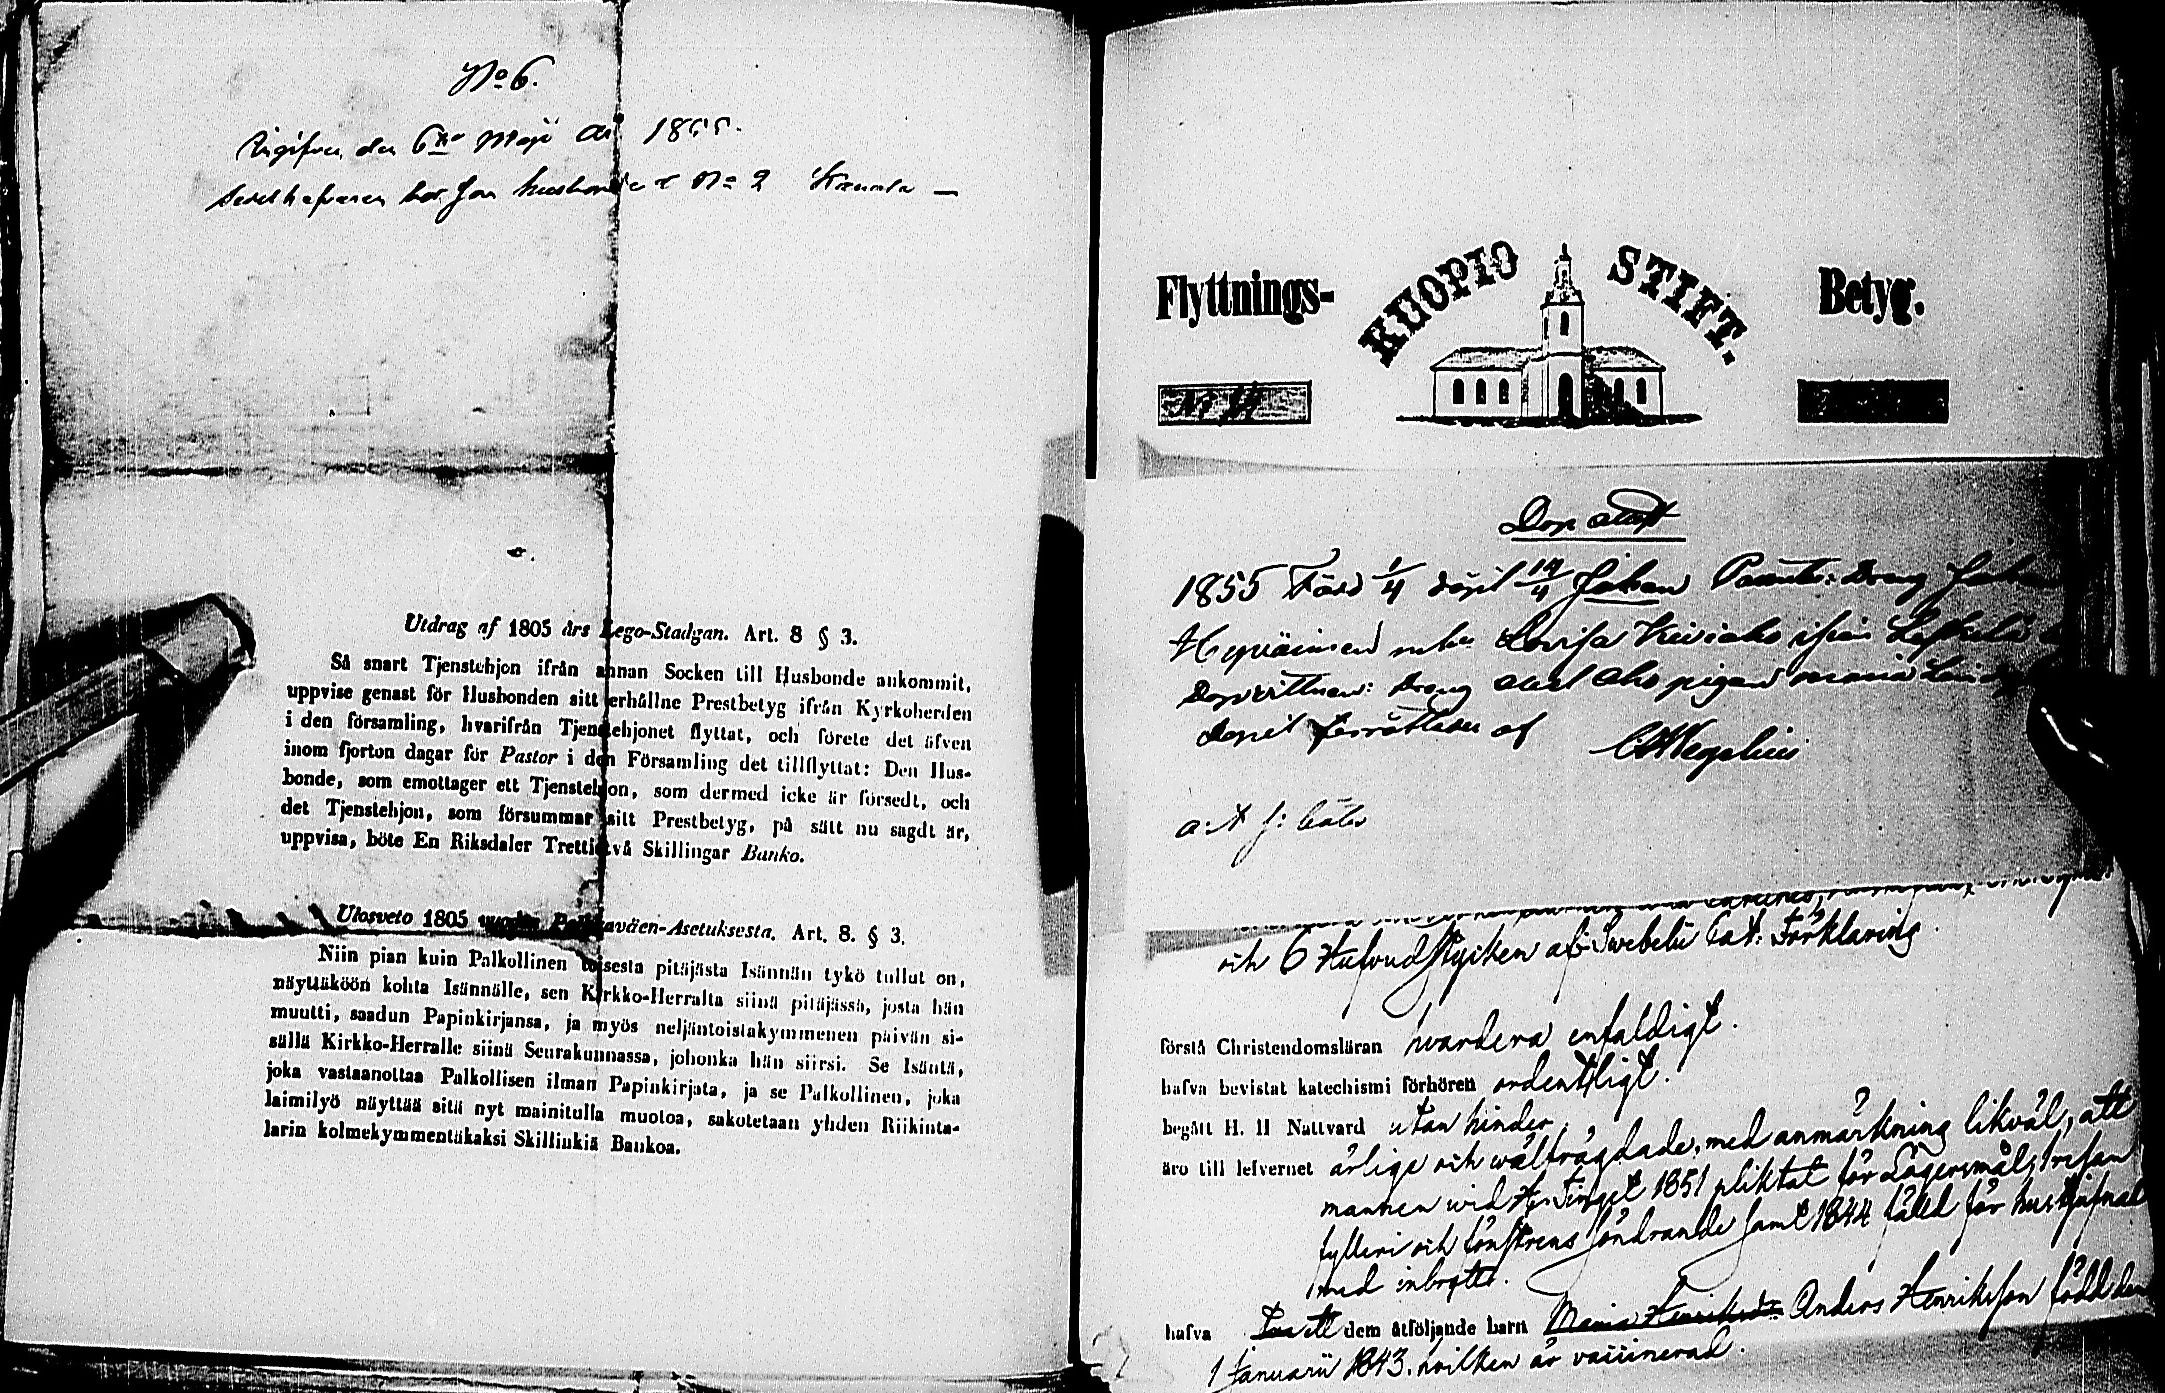 No 6.
den 6te Maji 1855.
No 2
Utdrag af 1805 års Lego-Stadgan. Art. 8 § 3.
Så snart Tjenstehjon ifrån annan Socken till Husbonde ankommit,
uppvise genast för Husbonden sitt erhållne Prestbetyg ifrån Kyrkoherden
i den församling, hvarifrån Tjenstehjonet flyttat, och förete det äfven
inom fjorton dagar för Pastor i den Församling det tillflyttat: Den Hus-
bonde, som emottager ett Tjenstehjon, som dermed icke är försedt, och
det Tjenstehjon, som försummar sitt Prestbetyg, på sätt nu sagdt är,
uppvisa, böte En Riksdaler Trettitvå Skillingar Banko.
Ulosveto 1805 vuoden Palkkaväen-Asetuksesta. Art. 8. § 3.
Niin pian kuin Palkollinen toisesta pitäjästä Isännän tykö tullut on,
näyttäköön kohta Isännälle, sen Kirkko-Herralta siinä pitäjässä, josta hän
muutti, saadun Papinkirjansa, ja myös neljäntoistakymmenen päivän si-
sällä Kirkko-Herralle siinä Seurakunnassa, johonka hän siirsi. Se Isäntä,
joka vastaanottaa Palkollisen ilman Papinkirjata, ja se Palkollinen, joka
laimilyö näyttää sitä nyt mainitulla muotoa, sakotetaan yhden Riikinta-
larin kolmekymmentäkaksi Skillinkiä Bankoa.
Flyttnings- KUOPIO STIFT. Betyg.
Dop attest
1855 Född 1/4 döpt 14/4 Johan Dräng
Lovisa ifrån
Dopvittnen: Dräng Abel Aho pigan Maria
Dopet förrättades af
och 6 Hufvudstycken af Swebelii Cat: Förklaring.
förstå Christendomsläran hvardera enfaldigt.
hafva bevistat katechismi förhören ordentligt.
begått H. H Nattvard utan hinder.
äro till lefvernet ärlige och wälfrägdade, med anmärkning likväl, att
mannen wid H. Tinget 1851 pliktat för Lägersmål, tresan
fylleri och fönstrens söndrande samt 1844 fälld för
med inbrott.
hafva dem åtföljande barn Maria Anders Henriksson född den
1 Januarii 1843. hvilken är vaccinerad.